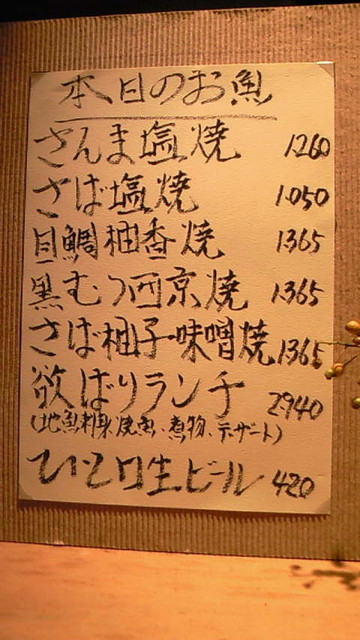 本日のお魚
さんま塩焼 1260
さば塩焼 1.050
目鯛柚香焼 1365
黒むつ西京焼 1365
さば柚子味噌焼 1365
欲ばりランチ 2940
(地魚刺身、焼魚、煮物、デザート)
ひと口生ビール 420